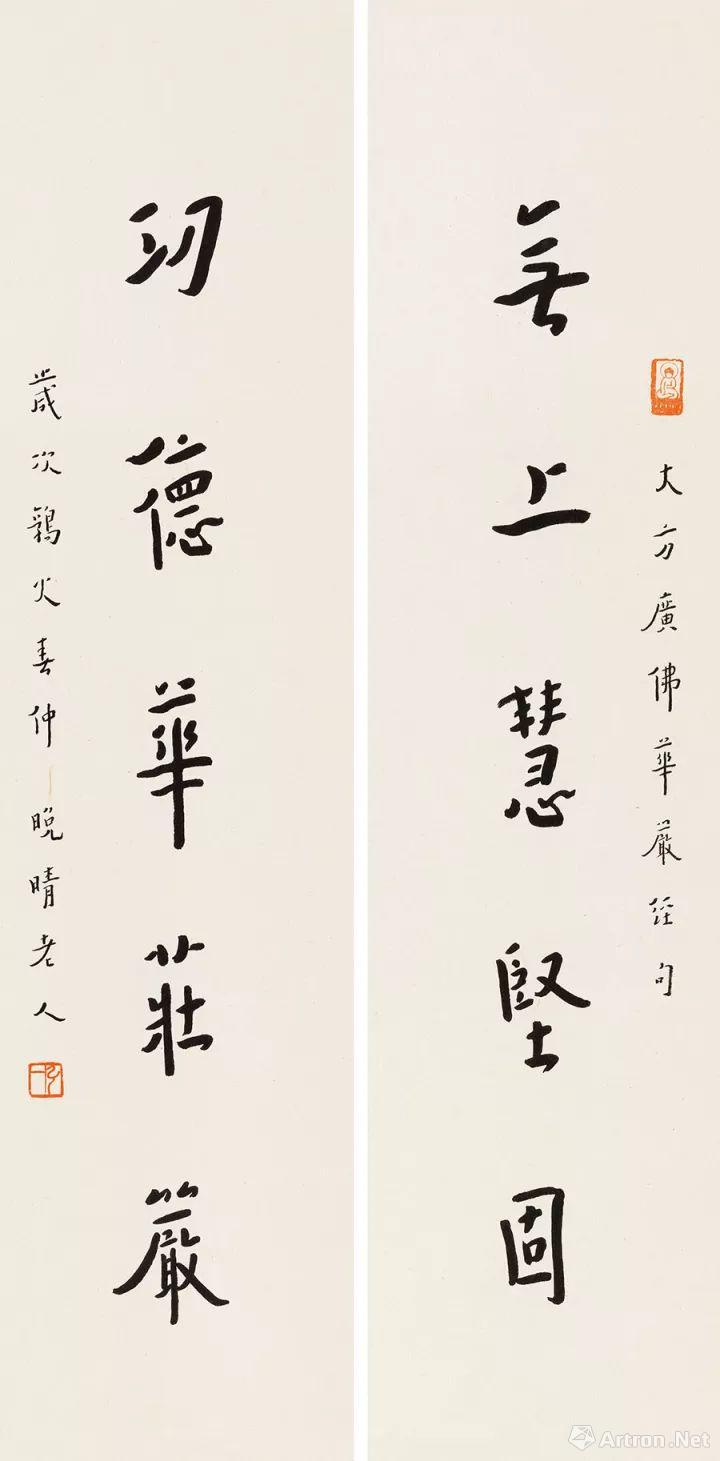 大方廣佛華嚴經句
無上慧堅固
功德華莊嚴
歲次鶉火春仲 晚晴老人
弘一
Artron.Net